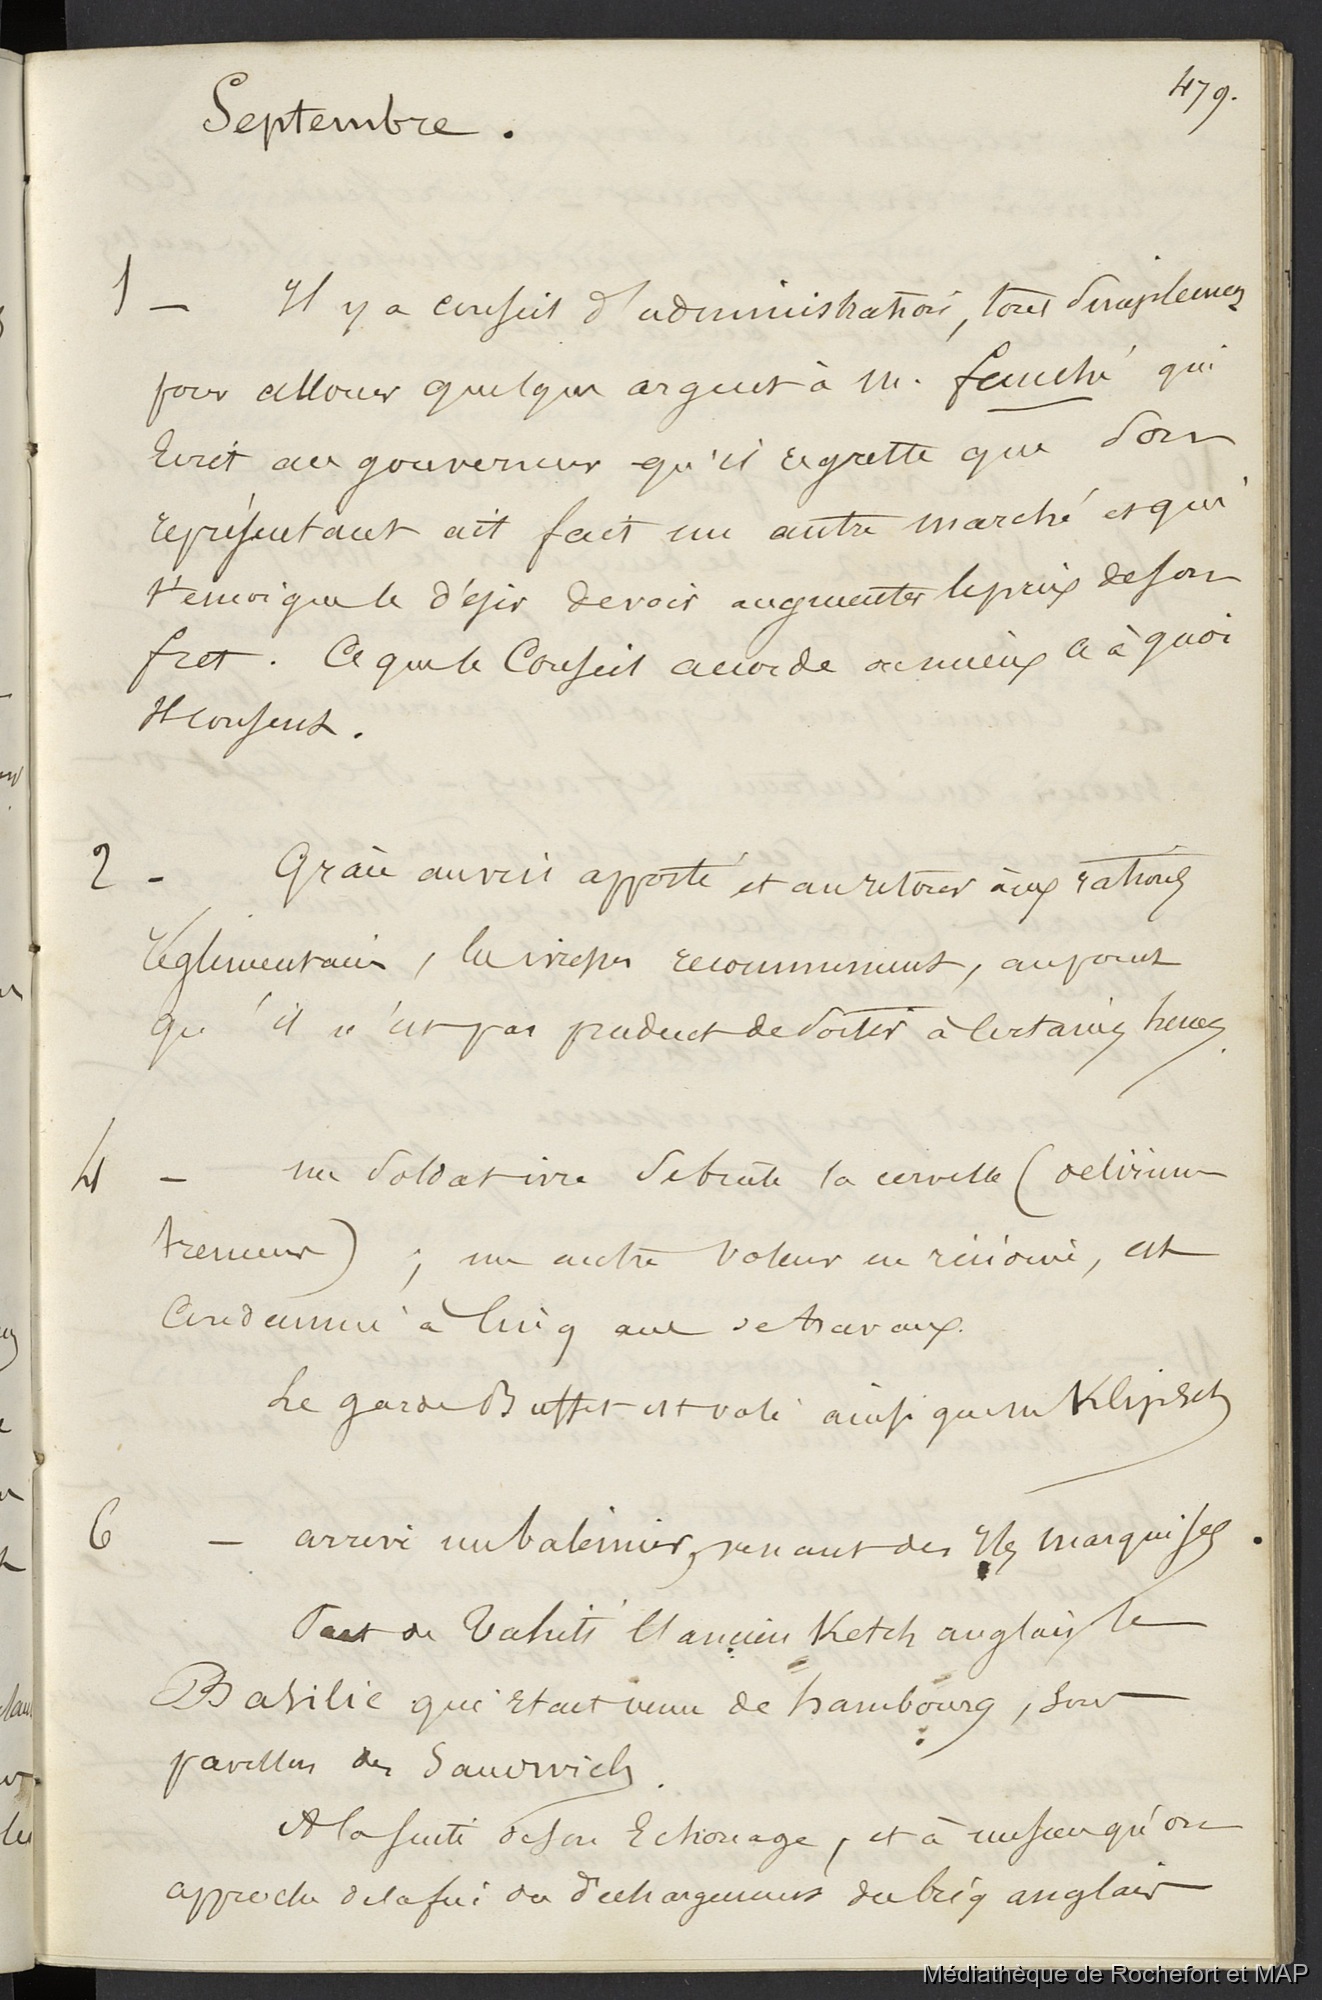 479.
Septembre.
1 — Il y a conseil d'administration, tout simplement
pour allouer quelque argent à m. fauché qui
Ecrit au gouverneur qu'il regrette que son
représentant ait fait un autre marché et qui
témoigne le désir de voir augmenter le prix de son
fret. Ce que le Conseil accorde on mieux a à quoi
Il consent.
2 — Grâce au vin apporté et au retour aux rations
réglementaires, les ivresses recommencent, au point
qu'il n'est pas prudent de sortir à certaines heures.
4 — un soldat ivre se brûle la cervelle (delirium
tremens) ; un autre voleur en récidive, est
Condamné à Cinq ans de travaux.
Le garde Buffet est volé ainsi que m Klipsch
6 — arrivé un baleinier, venant des Iles marquises.
Part de Tahiti l'ancien Ketch anglais le
Basilic qui était venu de hambourg, sous
pavillon des Sandwich.
A la suite de son Echouage, et à mesure qu'on
approche de la fin du déchargement du brig anglais
Médiathèque de Rochefort et MAP